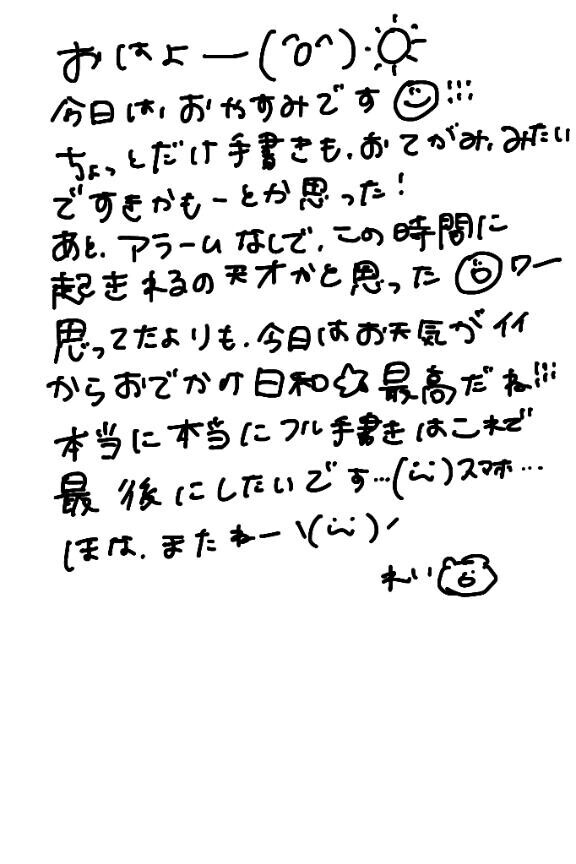 おはよー(^o^)・
今日は、おやすみです!!!
ちょっとだけ手書きも、おてがみ、みたい
ですきかもーとか思った!
あと、アラームなしで、この時間に
起きれるの天才かと思ったワー
思ってたよりも、今日はお天気がイイ
からおでかけ日和☆最高だね!!!
本当に本当にフル手書きはこれで
最後にしたいです…(¨)スマホ…
ほな、またねー\(¨)/
れい